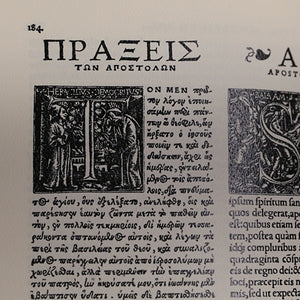 184.
ΠΡΑΞΕΙΣ
ΤΩΝ ΑΠΟΣΤΟΛΩΝ
HERACLITVS DEMOCRITVS
Τ
ΟΝ ΜΕΝ πρῶ
τον λόγον ἐποιη
σάμην περὶ πάν
των ὦ θεόφιλε, ὧν
ἤρξατο ὁ ἰησοῦς
ποιεῖν τε καὶ δι
δάσκειν, ἄχρι ἧς
ἡμέρας, ἐντειλά
μενος τοῖς ἀποστό
λοις, διὰ πνεύμα
τος ἁγίου, οὓς ἐξελέξατο, ἀνελήφθη, οἷς καὶ
παρέστησεν ἑαυτὸν ζῶντα μετὰ τὸ παθεῖν αὐ
τὸν, ἐν πολλοῖς τεκμηρίοις, δι' ἡμερῶν τεσσα
ράκοντα ὀπτανόμενος αὐτοῖς, καὶ λέγων τὰ
περὶ τῆς βασιλείας τοῦ θεοῦ, καὶ συναλιζό
μενος παρήγγειλεν αὐτοῖς ἀπὸ ἱεροσολύμων μὴ
χωρίζεσθαι, ἀλλὰ περιμένειν τὴν ἐπαγγελίαν
τοῦ πατρὸς, ἣν ἠκούσατέ μου, ὅτι ἰωάννης μὲν
ἐβάπτισεν ὕδατι, ὑμεῖς δὲ
A
APOST
S
spiritum san
quos delegerat, ap
quibus etiam
tem, postea quam
idq; compluribus
quadraginta
ei de regno dei:
præcepit